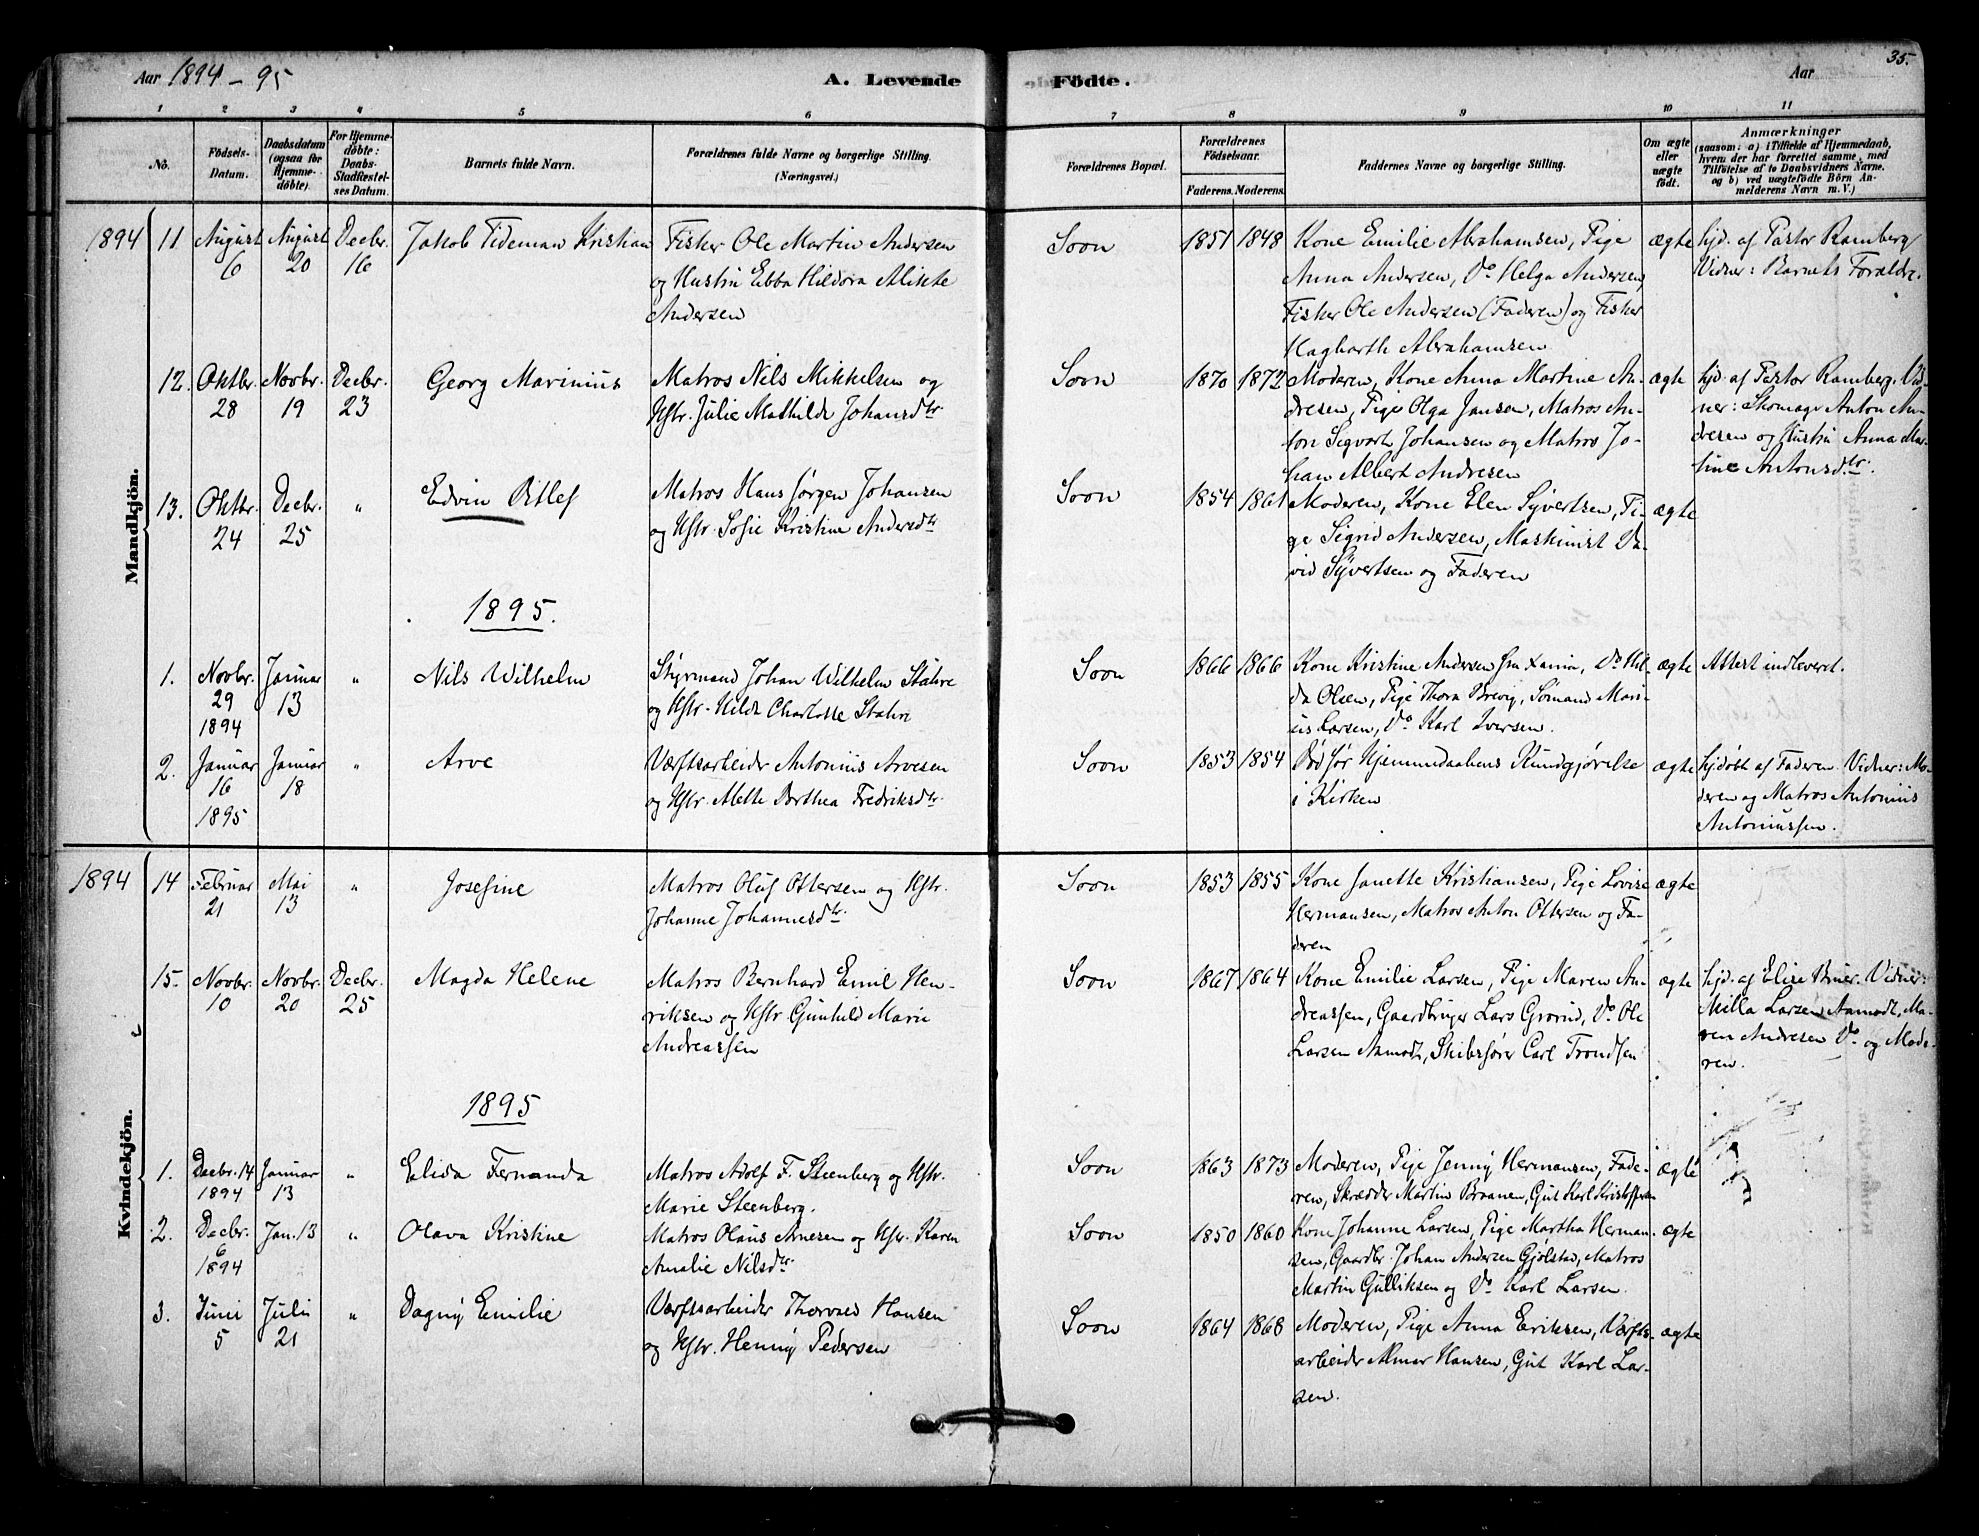 35.
Aar 1894 - 95
A. Levende
Födte.
Aar
1 2 3 4 5 6 7 8 9 10 11
No.
Födsels-
Datum.
Daabsdatum
(ogsaa för
Hjemme-
döbte).
For Hjemme-
döbte:
Daabs-
Stadfæstel-
ses Datum.
Barnets fulde Navn.
Forældrenes fulde Navne og borgerlige Stilling.
(Næringsvei.)
Forældrenes Bopæl.
Forældrenes
Födselsaar.
Faderens. Moderens.
Faddernes Navne og borgerlige Stilling.
Om ægte
eller
uægte
födt.
Anmærkninger
(saasom: a) i Tilfælde af Hjemmedaab,
hvem der har forrettet samme, med
Tilföielse af to Daabsvidners Navne,
og b) ved uægtefödte Börn An-
melderens Navn m. V.)
Mandkjön.
1894
11
August
6
August
20
Decbr.
16
Jakob Tideman Kristian
Fisker Ole Martin Andersen
og Hustru Ebba Hildora Mikke
Andersen
Soon
1851 1848
Kone Emilie Abrahamsen, Pige
Anna Andersen, Do Helga Andersen,
Fisker Ole Andersen (Faderen) og Fisker
Hagbarth Abrahamsen
ægte
hjd. af Pastor Ramberg
Vidner: Barnets Forældre.
12.
Oktbr.
28
Novbr.
19
Decbr.
23
Georg Marinius
Matros Nils Mikkelsen og
Hstr. Julie Mathilde Johansdtr.
Soon
1870 1872
Moderen, Kone Anna Martine An-
dresen, Pige Olga Jansen, Matros An-
ton Sigvart Johansen og Matros Jo-
han Albert Andresen
ægte
hjd. af Pastor Ramberg. Vid-
ner: Skomager Anton An-
dresen og Hustru Anna Mar-
tine Antonsdtr.
13.
Oktbr.
24
Decbr.
25
"
Edvin Ditlef
Matros Hans Jørgen Johansen
og Hstr. Sofie Kristine Andersdtr
Soon
1854 1861
Moderen, Kone Elen Syvertsen, Pi-
ge Sigrid Andersen, Maskinist Da-
vid Syvertsen og Faderen
ægte
1895.
1.
Novbr.
29
1894
Januar
13
"
Nils Wilhelm
Styrmand Johan Wilhelm Stahre
og Hstr. Hilda Charlotte Stahre
Soon
1866 1866
Kone Kristine Andersen fra Xania, Do Hil-
da Olsen, Pige Thora Brevig, Sömand Mari-
us Larsen, Do Karl Iversen.
ægte
Attest indleveret.
2.
Januar
16
1895
Januar
18
"
Arve
Værftsarbeider Antonius Arvesen
og Hstr. Mette Dorthea Fredriksdtr.
Soon
1853 1854
Död før Hjemmedaabens Kundgjørelse
i Kirken
ægte
hjdöbt af Faderen. Vidner: Mo-
deren og Matros Antonius
Antoniussen.
Kvindekjön.
1894
14
Februar
21
Mai
13
"
Josefine
Matros Oluf Ottersen og Hstr.
Johanne Johannesdtr.
Soon
1853 1855
Kone Janette Kristiansen, Pige Lovise
Hermansen, Matros Anton Ottersen og Fa-
deren
ægte
15.
Novbr.
10
Novbr.
20
Decbr.
25
Magda Helene
Matros Bernhard Emil Hen-
riksen og Hstr. Gunhild Marie
Andreassen
Soon
1867 1864
Kone Emilie Larsen, Pige Maren An-
dreassen, Gaardbruger Lars Grorud, Do Ole
Larsen Aamodt, Skibsfører Carl Trondsen
ægte
hjd. af Elise Bruer. Vidner:
Milla Larsen Aamodt, Ma-
ren Andresen Do og Mode-
ren.
1895
1.
Decbr. 14
1894
Januar
13
"
Elida Fernanda
Matros Adolf F. Steenberg og Hstr.
Marie Steenberg.
Soon
1863 1873
Moderen, Pige Jenny Hermansen, Fade-
ren, Skrædder Martin Braanen, Gut Karl Kristoffersen
ægte
2.
Decbr.
6
1894
Jan. 13
"
Olava Kristine
Matros Olaus Arnesen og Hstr. Karen
Amalie Nilsdtr.
Soon
1850 1860
Kone Johanne Larsen, Pige Martha Herman-
sen, Gaardbr. Johan Andersen Gjølstad, Matros
Martin Gulliksen og Do Karl Larsen.
ægte
3.
Juni
5
Juli
21
"
Dagny Emilie
Værftsarbeider Thorvald Hansen
og Hstr. Henny Pedersen
Soon
1864 1868
Moderen, Pige Anna Eriksen, Værfts-
arbeider Almar Hansen, Gut Karl Lar-
sen.
ægte